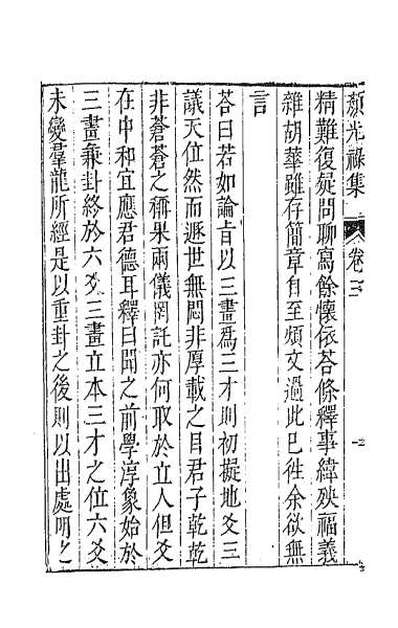 顏光祿集 卷三
精難復疑問聊寫餘懷依荅條釋事緯殃福義
雜胡華雖存簡章自至煩文過此已徃余欲無
言
荅曰若如論旨以三畫爲三才則初擬地爻三
議天位然而遯世無悶非厚載之目君子乾乾
非蒼蒼之稱果兩儀罔託亦何取於立人但爻
在中和宜應君德耳釋曰聞之前學淳象始於
三畫兼卦終於六爻三畫立本三才之位六爻
未變羣龍所經是以重卦之後則以出處明之